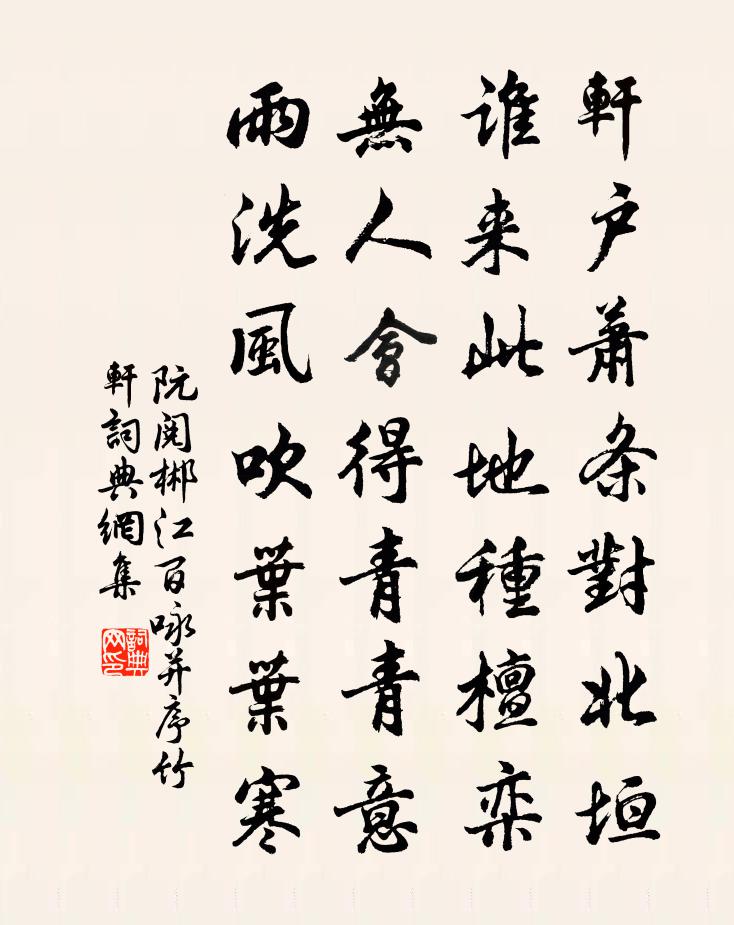 軒户蕭条對北垣
誰来此地種檀栾
無人會得青青意
雨洗風吹葉葉寒
阮閱郴江百咏并序竹
軒詞典網集
詞典
网印